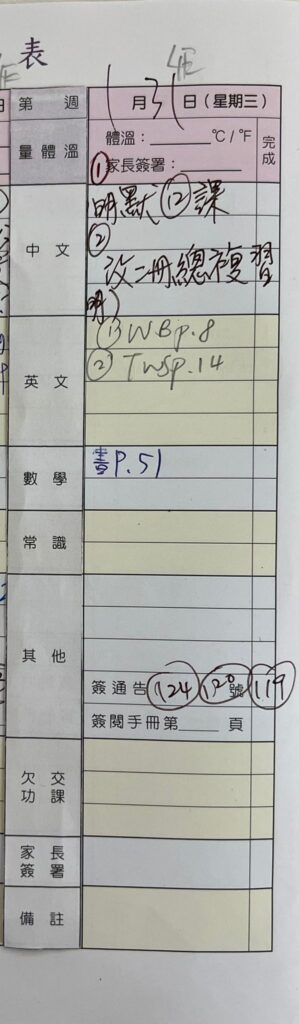 表
第 週 1 月 31 日 (星期三)
量體溫 體溫：____ ℃/℉ 完成
① 家長簽署：____
中文 明默⑫課
② 改二冊總複習
明)
英文 ① WBp.8
② TWSp.14
數學 書P.51
常識
其他
簽通告 124 120 號 119
簽閱手冊第____頁
欠交功課
家長簽署
備註